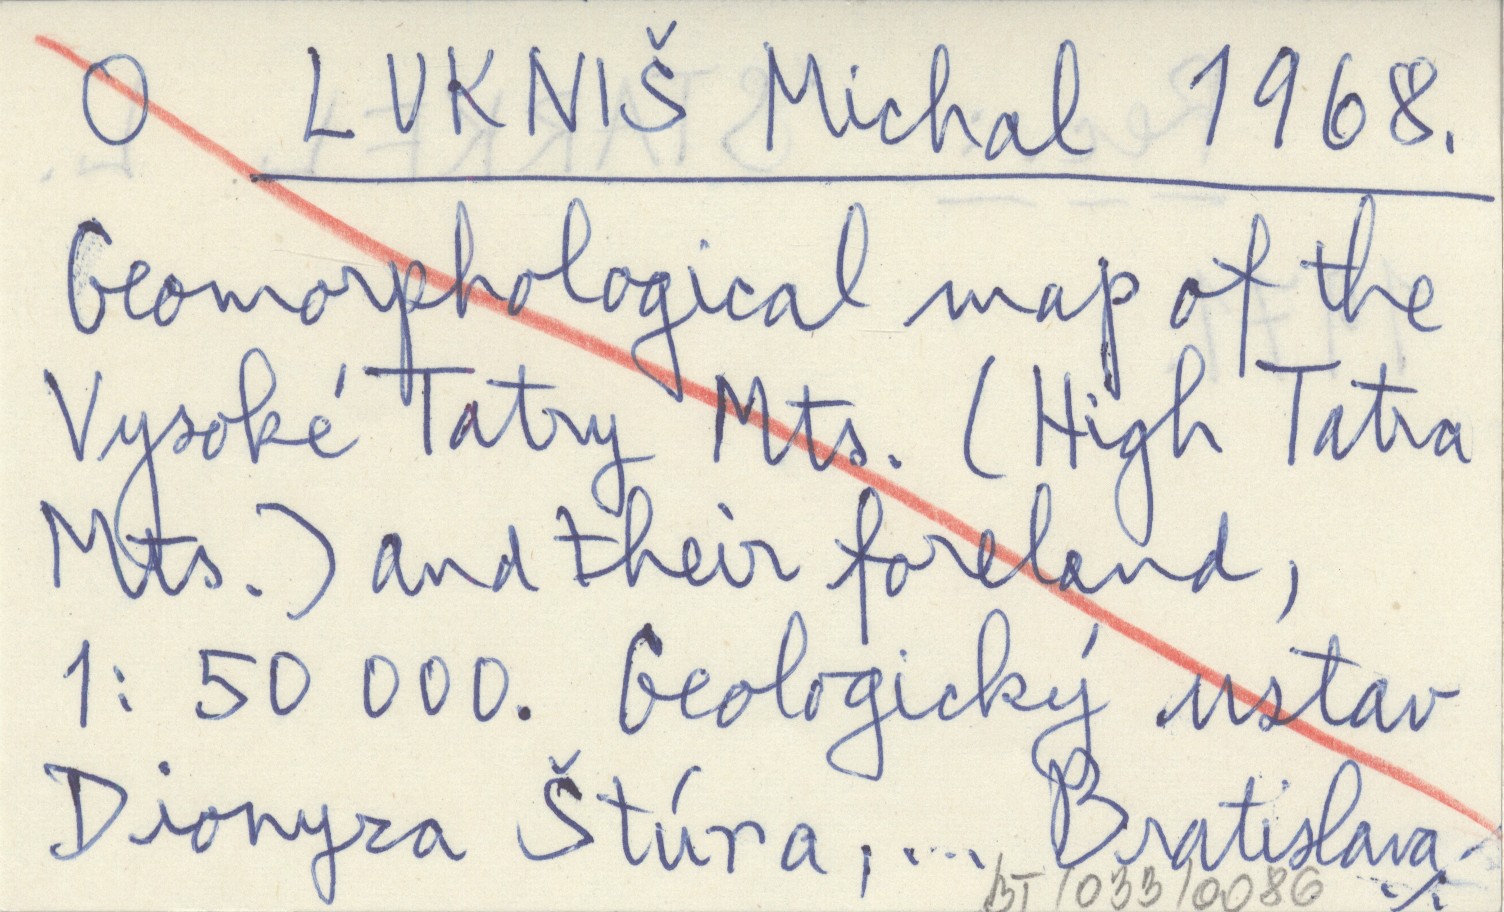 O LUKNIŠ Michal 1968.
Geomorphological map of the
Vysoké Tatry Mts. (High Tatra
Mts.) and their foreland,
1: 50 000. Geologický ustav
Dionyza Štúra, ... Bratislava
./.
BT/033/0086